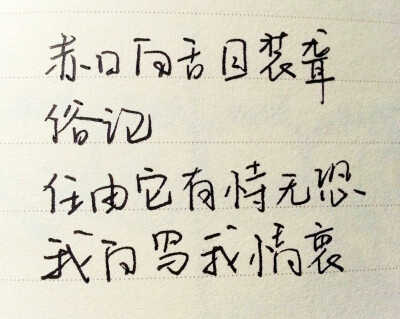 赤口白舌装聋
俗记
任由它有恃无恐
我自写我情衷